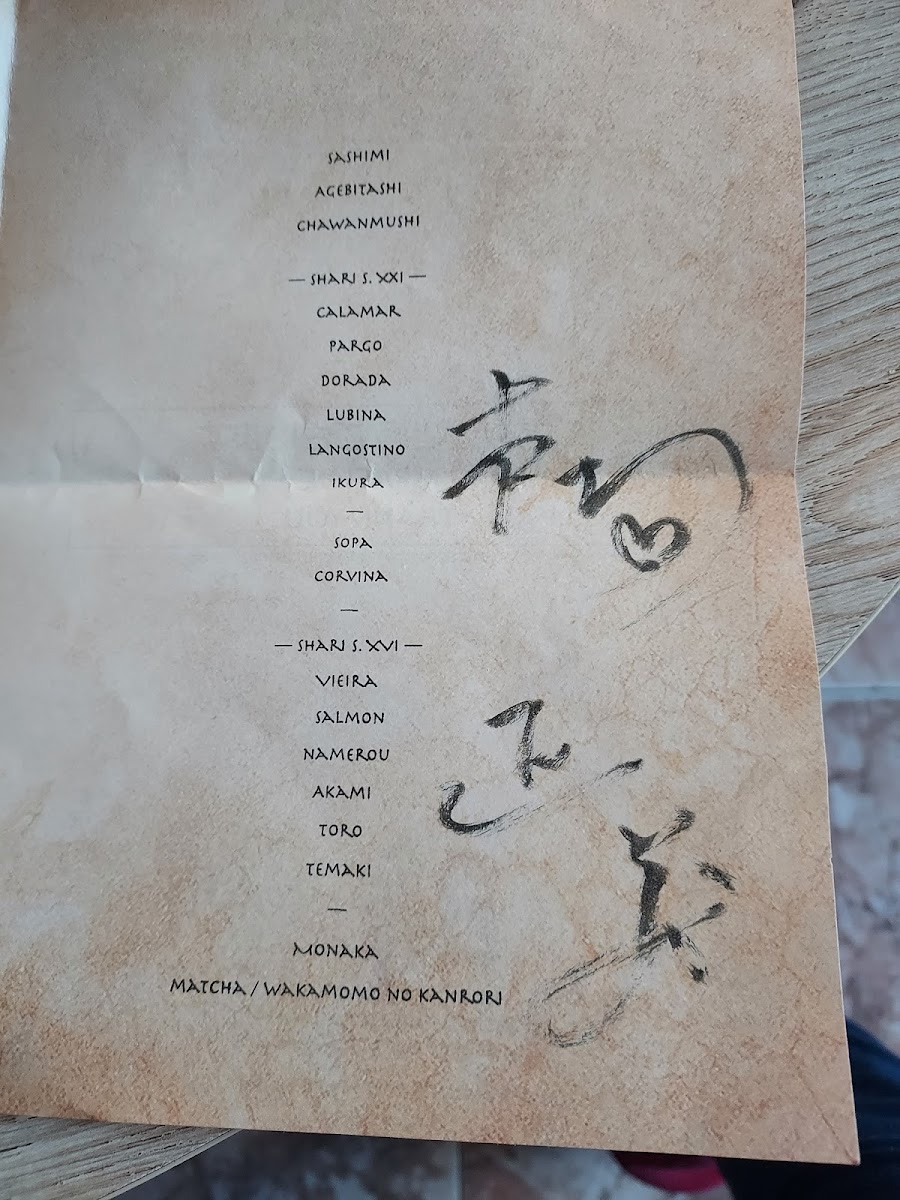 SASHIMI
AGEBITASHI
CHAWANMUSHI
— SHARI S. XXI —
CALAMAR
PARGO
DORADA
LUBINA
LANGOSTINO
IKURA
—
SOPA
CORVINA
—
— SHARI S. XVI —
VIEIRA
SALMON
NAMEROU
AKAMI
TORO
TEMAKI
—
MONAKA
MATCHA / WAKAMOMO NO KANRORI